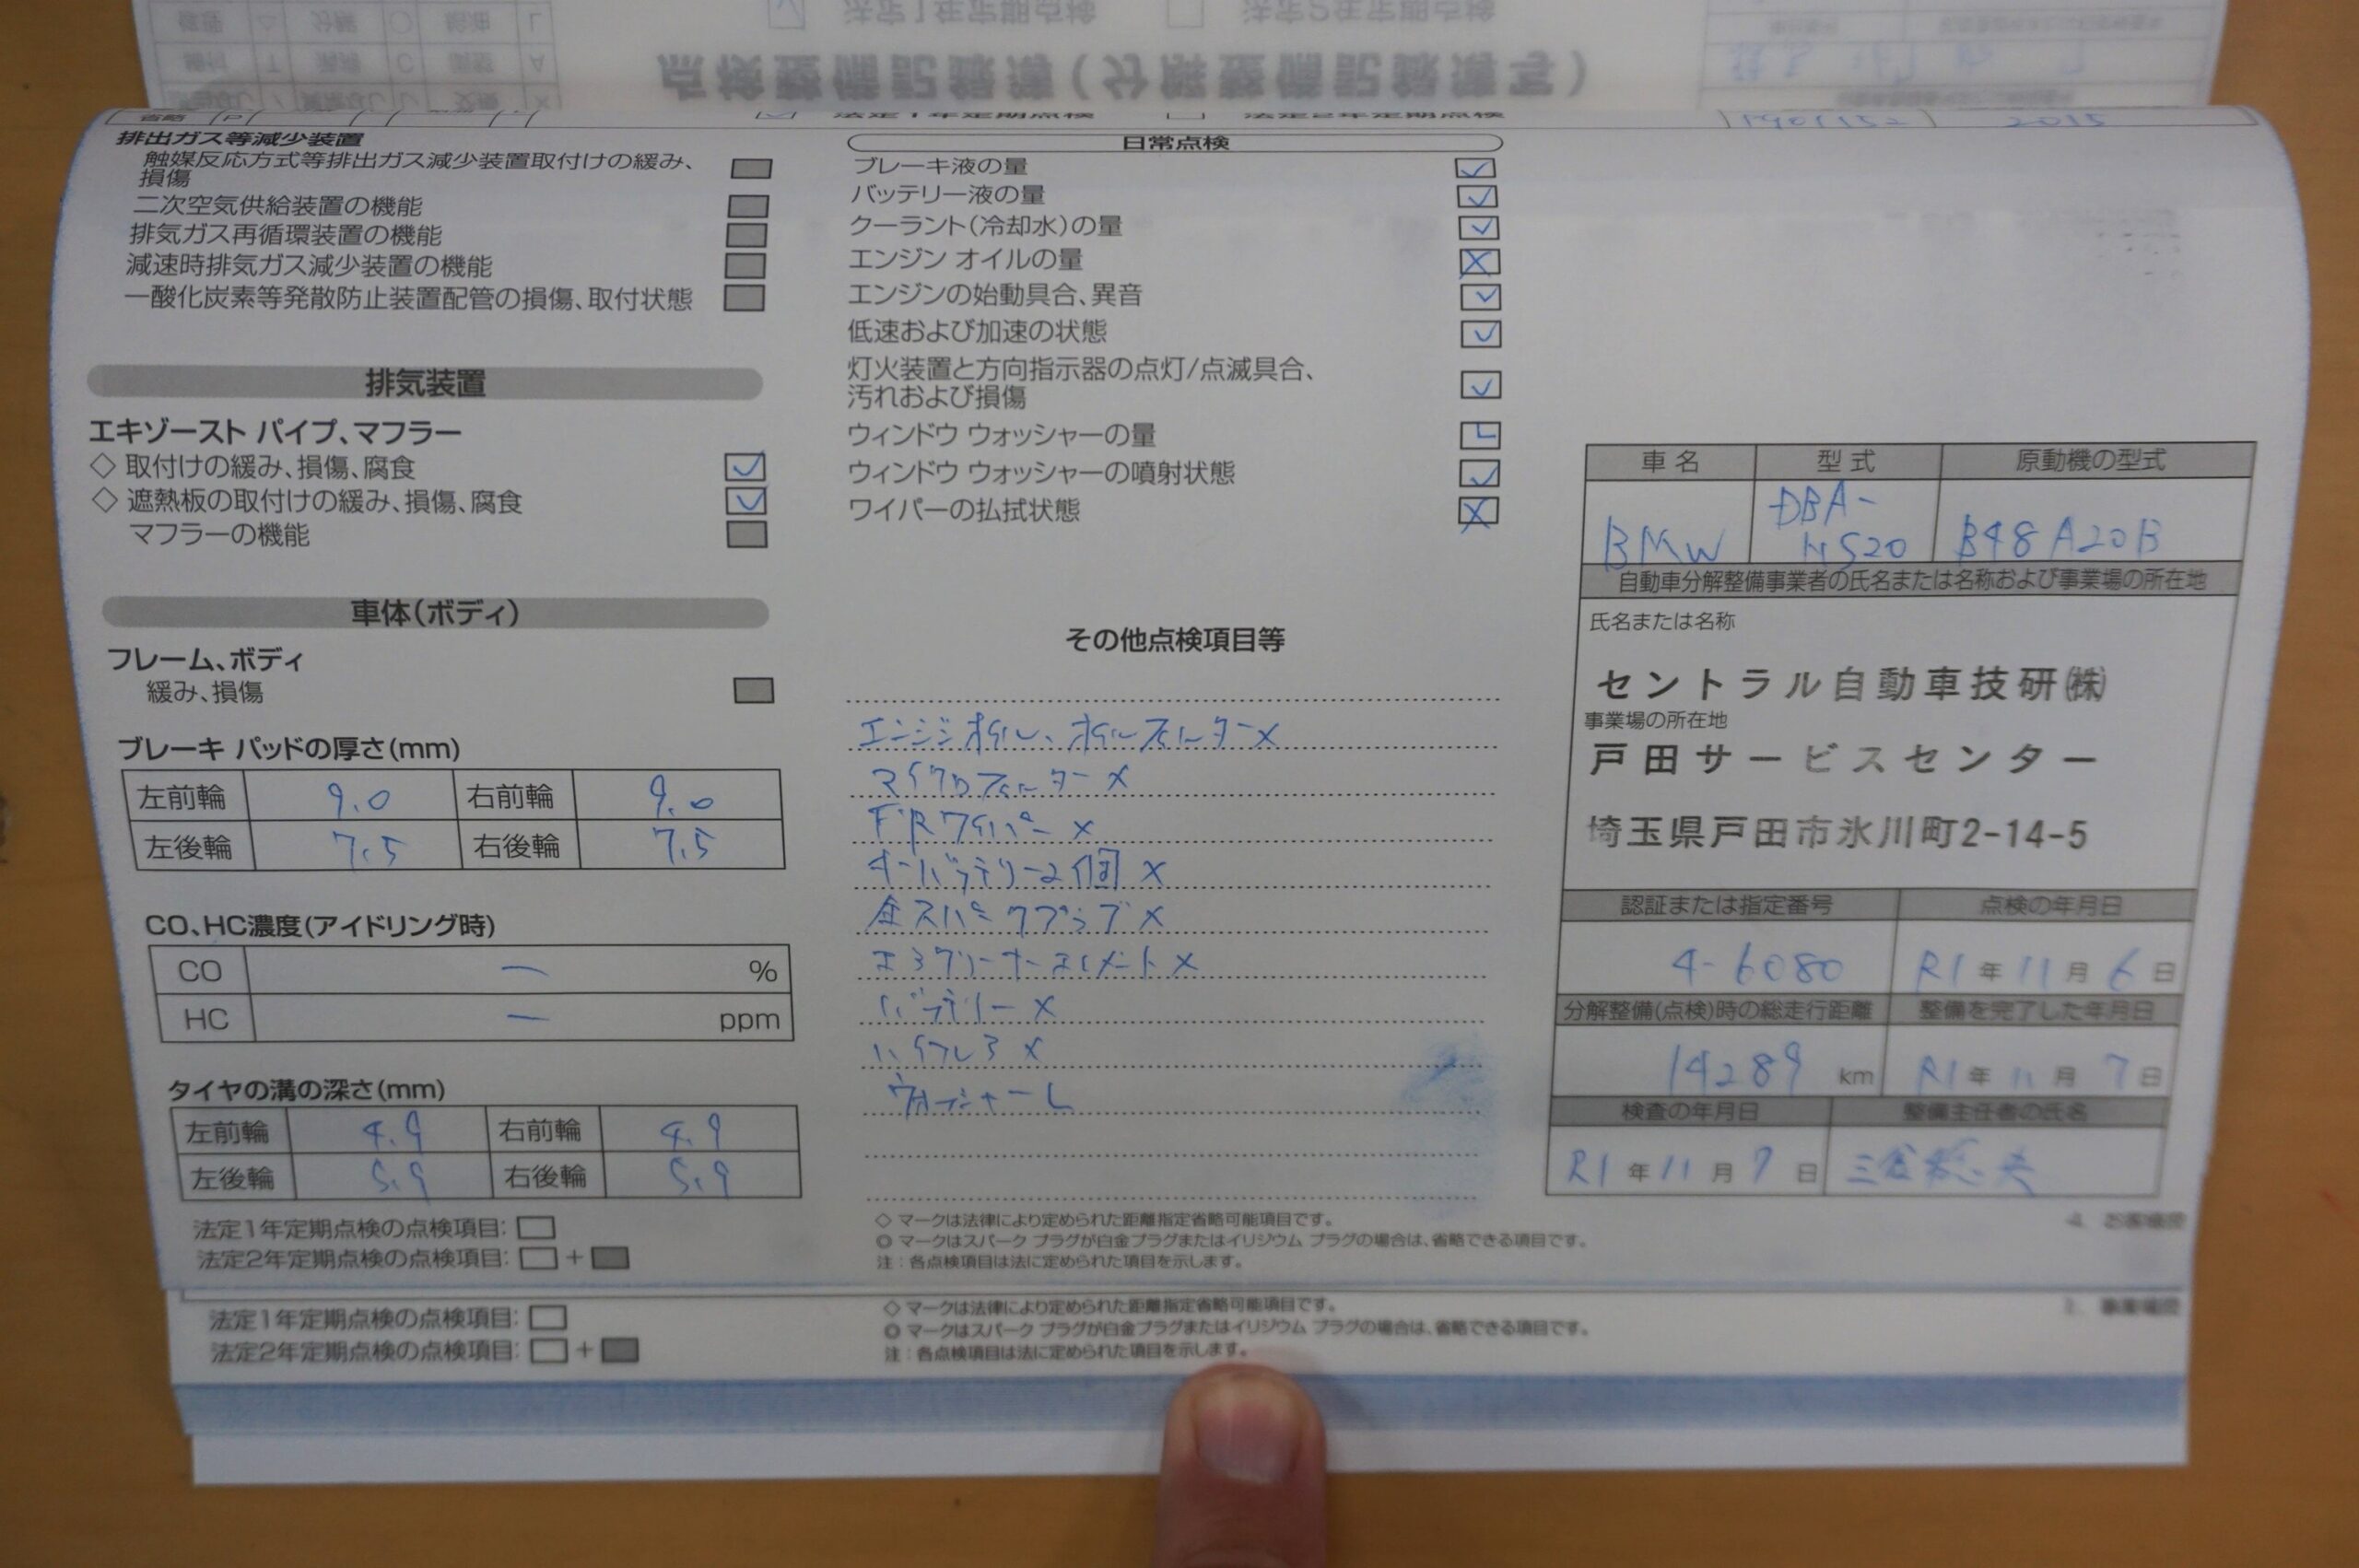 点検整備記録簿(分解整備記録簿写)
法定1年定期点検
法定2年定期点検
省略 P
法定1年定期点検 法定2年定期点検
排出ガス等減少装置
触媒反応方式等排出ガス減少装置取付けの緩み、
損傷
二次空気供給装置の機能
排気ガス再循環装置の機能
減速時排気ガス減少装置の機能
一酸化炭素等発散防止装置配管の損傷、取付状態
排気装置
エキゾースト パイプ、マフラー
◇ 取付けの緩み、損傷、腐食 ✓
◇ 遮熱板の取付けの緩み、損傷、腐食 ✓
マフラーの機能
車体(ボディ)
フレーム、ボディ
緩み、損傷
ブレーキ パッドの厚さ(mm)
左前輪 9.0 右前輪 9.0
左後輪 7.5 右後輪 7.5
CO、HC濃度(アイドリング時)
CO ー %
HC ー ppm
タイヤの溝の深さ(mm)
左前輪 4.9 右前輪 4.9
左後輪 5.9 右後輪 5.9
法定1年定期点検の点検項目:
法定2年定期点検の点検項目: +
日常点検
ブレーキ液の量 ✓
バッテリー液の量 ✓
クーラント(冷却水)の量 ✓
エンジン オイルの量 X
エンジンの始動具合、異音 ✓
低速および加速の状態 ✓
灯火装置と方向指示器の点灯/点滅具合、
汚れおよび損傷 ✓
ウィンドウ ウォッシャーの量 L
ウィンドウ ウォッシャーの噴射状態 ✓
ワイパーの払拭状態 X
その他点検項目等
エンジンオイル、オイルフィルターX
マイクロフィルターX
F/Rワイパー X
キーバッテリー2個 X
全スパークプラグ X
エアクリーナーエレメント X
バッテリー X
ハイフレア X
ウォッシャー L
◇ マークは法律により定められた距離指定省略可能項目です。
◎ マークはスパーク プラグが白金プラグまたはイリジウム プラグの場合は、省略できる項目です。
注:各点検項目は法に定められた項目を示します。
車名 型式 原動機の型式
BMW DBA-
HS20 B48A20B
自動車分解整備事業者の氏名または名称および事業場の所在地
氏名または名称
セントラル自動車技研㈱
事業場の所在地
戸田サービスセンター
埼玉県戸田市氷川町2-14-5
認証または指定番号 点検の年月日
4-6080 R1年11月6日
分解整備(点検)時の総走行距離 整備を完了した年月日
14289 km R1年11月7日
検査の年月日 整備主任者の氏名
R1年11月7日
4. お客様控
法定1年定期点検の点検項目:
法定2年定期点検の点検項目: +
◇ マークは法律により定められた距離指定省略可能項目です。
◎ マークはスパーク プラグが白金プラグまたはイリジウム プラグの場合は、省略できる項目です。
注:各点検項目は法に定められた項目を示します。